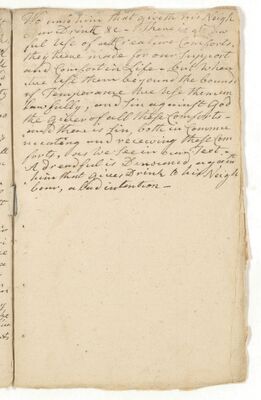 Wo unto him that giveth his Neigh
bour Drink &c - There is a law
full use of all Creature Comforts,
they were made for our Support
and Comfort in Life - but when
we use them beyound the bounds
of Temperance we use them un
lawfully, and sin against God
the Giver of all these Comforts -
and there is sin, both in commu
nicating and receiveing these Com
forts, as we see in our Text -
A dreadful is Denounced, against
him that Gives Drink to his Neigh
bour, a bad intention -